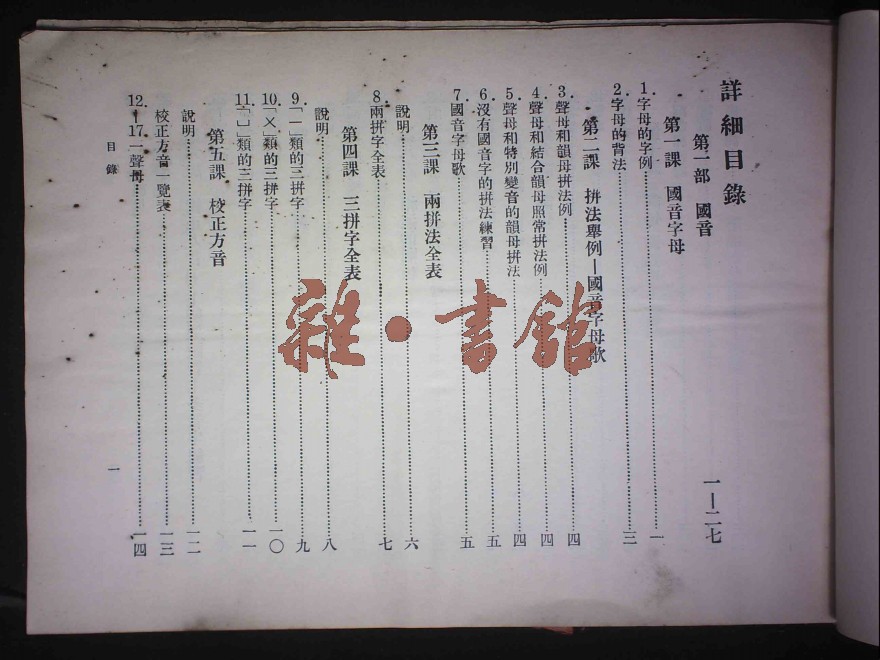 詳細目錄
第一部 國音 一—二七
第一課 國音字母
1. 字母的字例 一
2. 字母的背法 三
第二課 拼法舉例—國音字母歌
3. 聲母和韻母拼法例 四
4. 聲母和結合韻母照常拼法例 四
5. 聲母和特別變音的韻母拼法 四
6. 沒有國音字的拼法練習 五
7. 國音字母歌 五
第三課 兩拼法全表
說明 六
8. 兩拼字全表 七
第四課 三拼字全表
說明 八
9.「一」類的三拼字 九
10.「ㄨ」類的三拼字 一〇
11.「ㄩ」類的三拼字 一一
第五課 校正方音
說明 一二
校正方音一覽表 一三
12.—17. 一聲母 一四
目錄 一
雜·書館